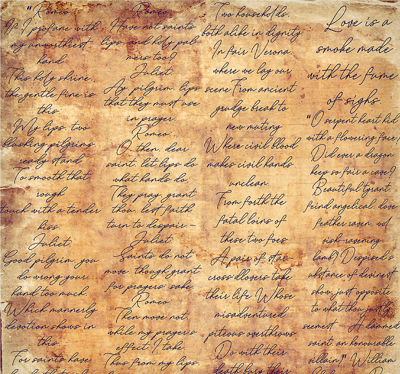 "Romeo
If I profane with
my unworthiest
hand
This holy shrine,
the gentle fine is
this
My lips, two
blushing pilgrims,
ready stand
To smooth that
rough
touch with a tender
kiss.
Juliet
Good pilgrim, you
do wrong your
hand too much,
Which mannerly
devotion shows in
this
For saints have
Romeo
Have not saints
lips, and holy pal
mers too?
Juliet
Ay, pilgrim, lips
that they must use
in prayer.
Romeo
O, then, dear
saint, let lips do
what hands do
They pray, grant
thou, lest faith
turn to despair.
Juliet
Saints do not
move, though grant
for prayers' sake.
Romeo
Then move not,
while my prayer's
effect I take.
Thus from my lips,
Two households,
both alike in dignity
In fair Verona,
where we lay our
scene From ancient
grudge break to
new mutiny
Where civil blood
makes civil hands
unclean.
From forth the
fatal loins of
these two foes
A pair of star
cross'd lovers take
their life Whose
misadventured
piteous overthrows
Do with their
death bury their
Love is a
smoke made
with the fume
of sighs
"O serpent heart hid
with a flowering face,
Did ever a dragon
keep so fair a cave?
Beautiful tyrant,
feind angelical, dove
feather raven, wol
vish-ravening
lamb! Despised s
ubstance of divinest
show, just opposite
to what thou justly
seemest - A damned
saint, an honourable
villain." William